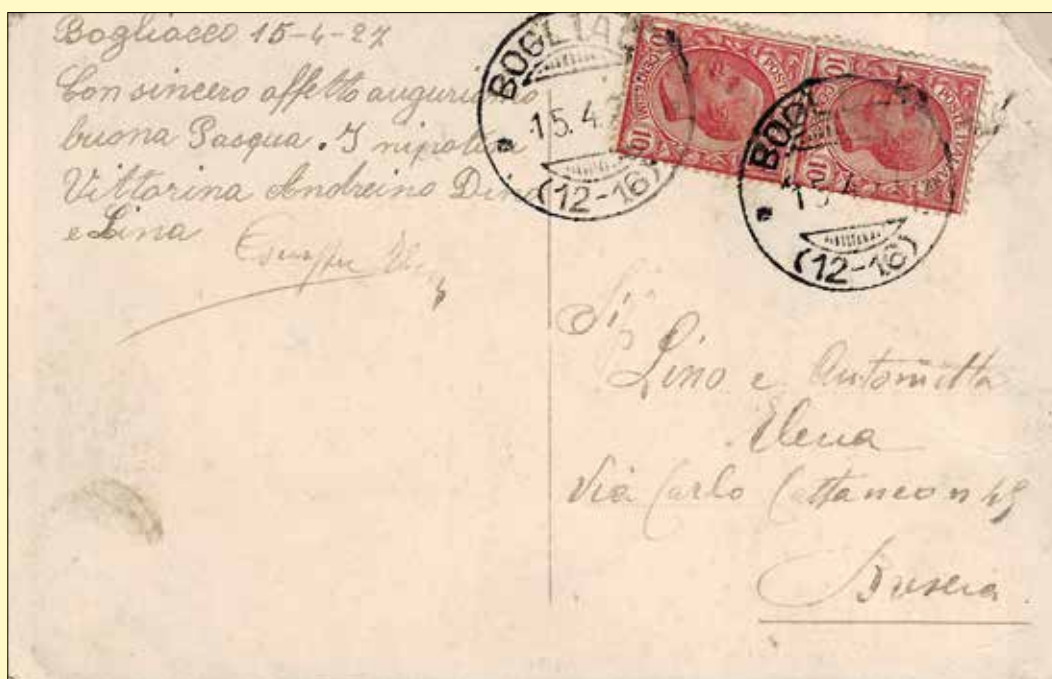 Bogliacco 15-4-27
Con sincero affetto auguriamo
buona Pasqua. I nipotini
Vittorina Andreino Dino
e Lina
BOGLIA
15.4.
(12-16)
10 POSTE ITALIANE 10
10 POSTE ITALIANE 10
BOGLIA
(12-16)
Lino e Antonietta
Elena
Via Carlo Cattaneo n 49
Brescia